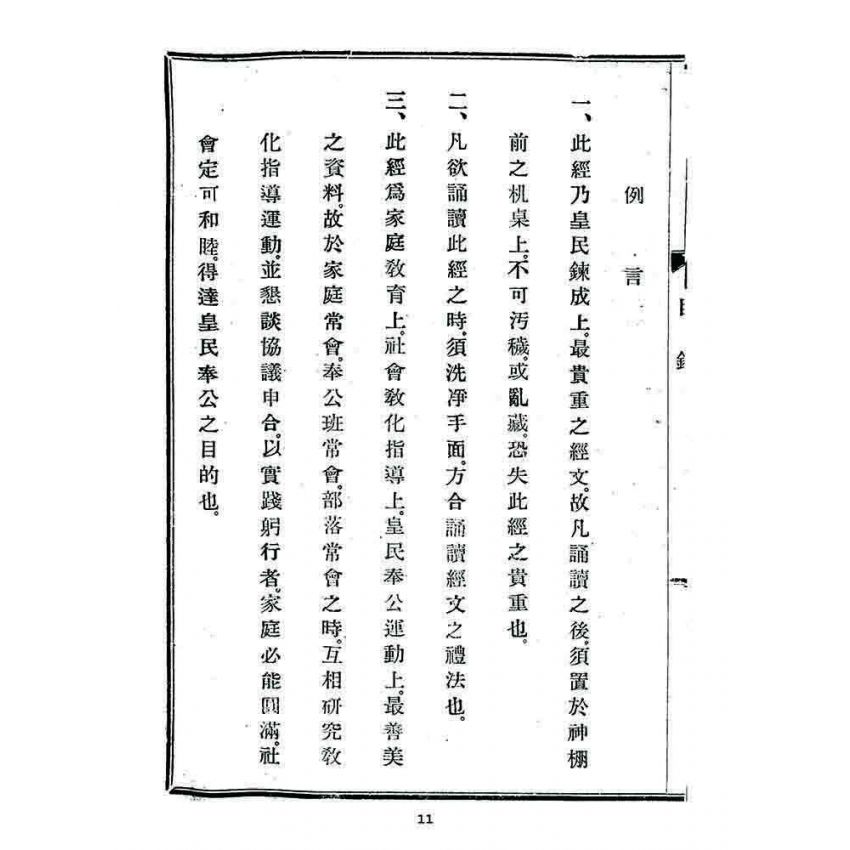 例言
一、此經乃皇民鍊成上。最貴重之經文。故凡誦讀之後。須置於神棚
前之机桌上。不可汚穢。或亂藏。恐失此經之貴重也。
二、凡欲誦讀此經之時。須洗淨手面。方合誦讀經文之禮法也。
三、此經爲家庭敎育上。社會敎化指導上。皇民奉公運動上。最善美
之資料。故於家庭常會。奉公班常會。部落常會之時。互相硏究敎
化指導運動。並懇談協議申合。以實踐躬行者。家庭必能圓滿。社
會定可和睦。得達皇民奉公之目的也。
11